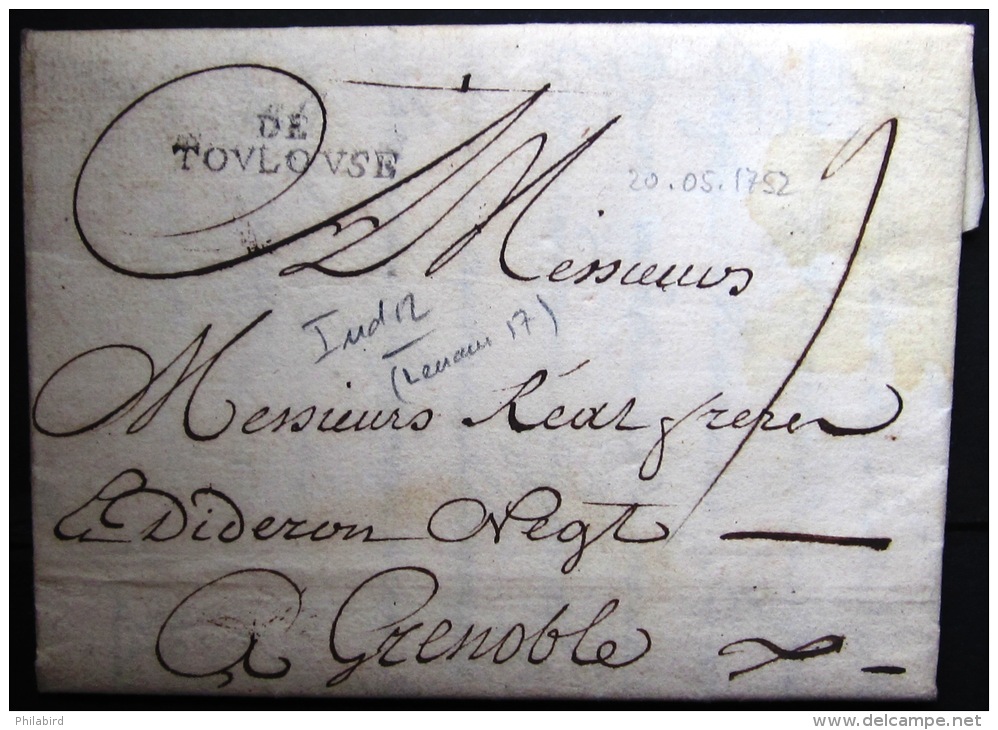 DE
TOVLOVSE
20.05.1752
Messieurs
Ind 12
(Lenain 17)
Messieurs Réal freres
& Dideron Negt
A Grenoble
Philabird
www.delcampe.net